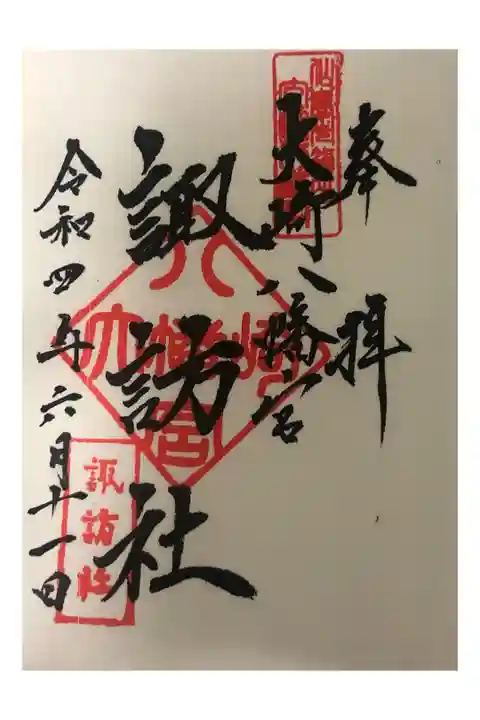 奉拝
大崎八幡宮
諏訪社
令和四年六月十一日
八幡宮
諏訪社